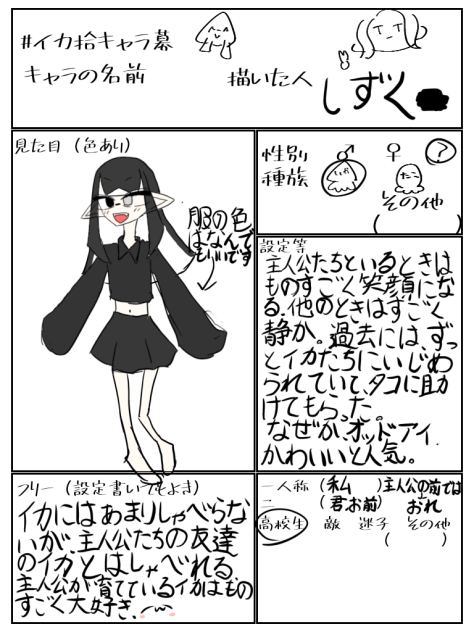 #イカ拾キャラ募
キャラの名前
描いた人
しずく
見た目（色あり）
服の色
はなんで
もいいです
性別 ♂ ♀ ?
種族 いか たこ
その他
（ ）
設定等
主人公たちといるときは
ものすごく笑顔にな
る.他のときはすごく
静か。過去には、ずっ
とイカたちにいじめ
られていて、タコに助
けてもらった。
なぜか、オッドアイ.
かわいいと人気。
フリー（設定書いてもよき）
イカにはあまりしゃべらな
いが、主人公たちの友達
のイカとはしゃべれる
主人公が育てているイカはもの
すごく大好き.
一人称（私 ）主人公の前では
二 （君.お前）おれ
高校生 敵 迷子 その他
（ ）